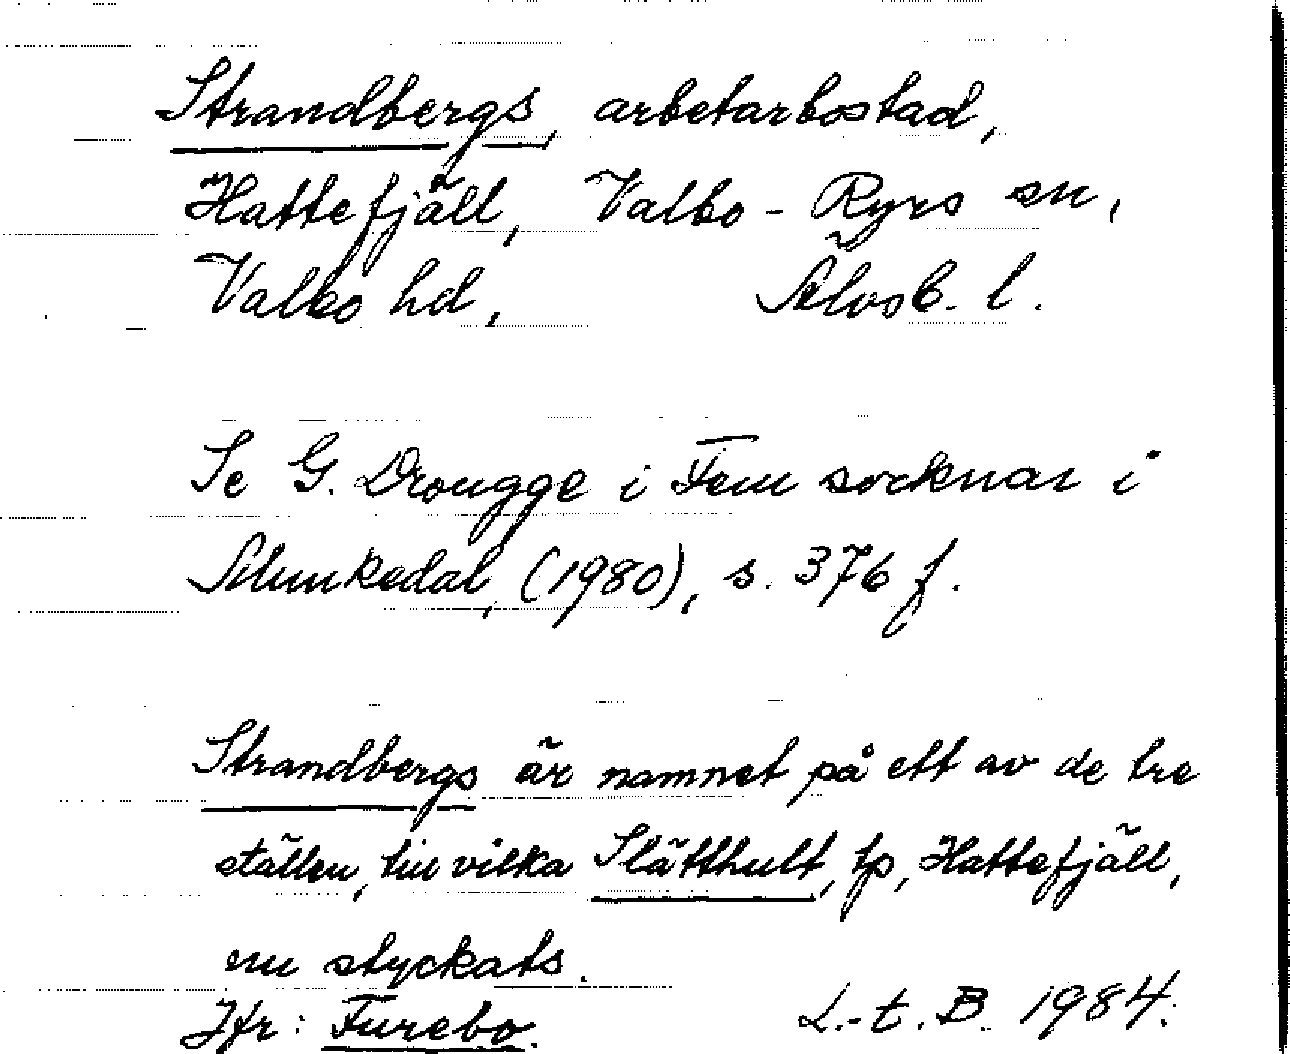 Strandbergs, arbetarbostad,
Hattefjäll, Valbo-Ryrs sn,
Valbo hd, Älvsb. l.
Se G. Drougge i Fem socknar i
Munkedal, (1980), s. 376 f.
Strandbergs är namnet på ett av de tre
ställen, till vilka Slätthult, tp, Hattefjäll,
nu styckats.
Jfr: Furebo. L.-t. B. 1984.